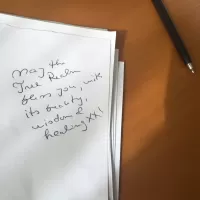 May the
Tree Realm
bless you, with
its beauty,
wisdom &
healing xx!